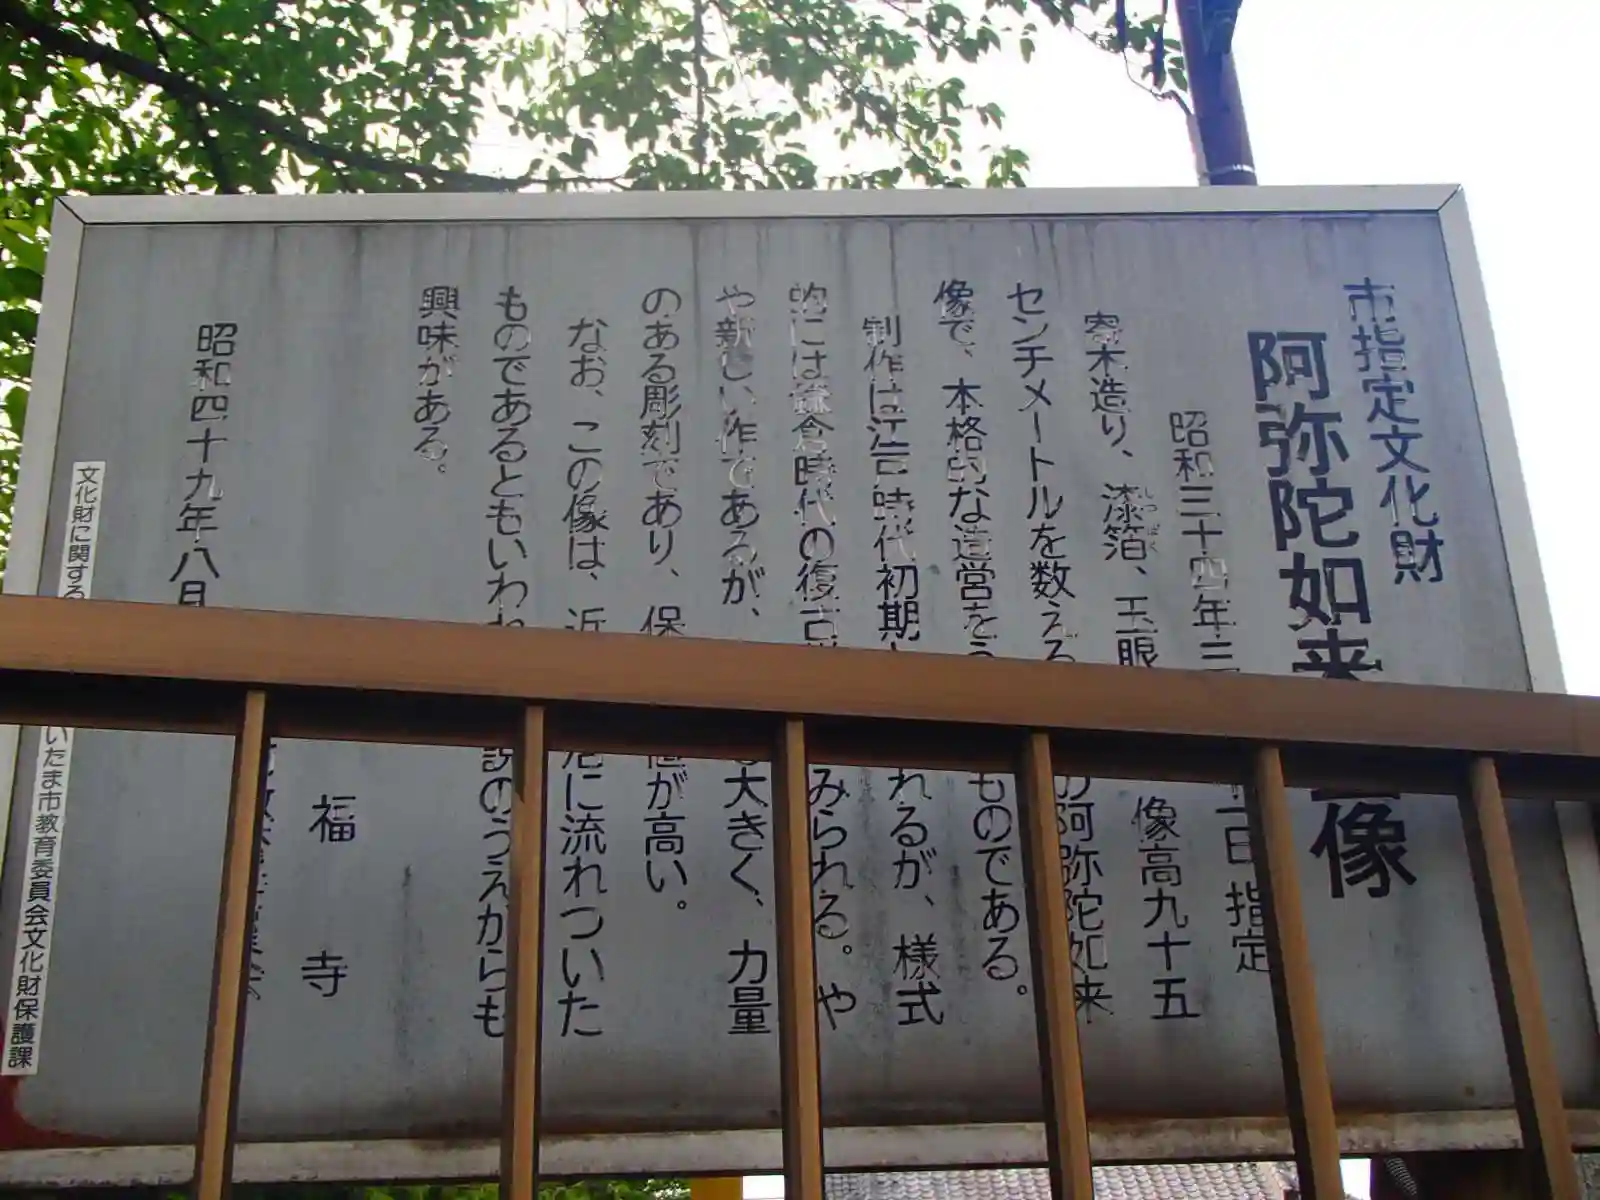 市指定文化財
阿弥陀如来 像
昭和三十四年三 一日指定
寄木造り、漆箔、玉眼 像高九十五
しっぱく
センチメートルを数える の阿弥陀如来
像で、本格的な造営をう ものである。
制作は江戸時代初期と れるが、様式
的には鎌倉時代の復古 みられる。や
や新しい作であるが、 大きく、力量
のある彫刻であり、保 値が高い。
なお、この像は、近 に流れついた
ものであるともいわれ 説のうえからも
興味がある。
昭和四十九年八月
福寺
文化財に関する いたま市教育委員会文化財保護課